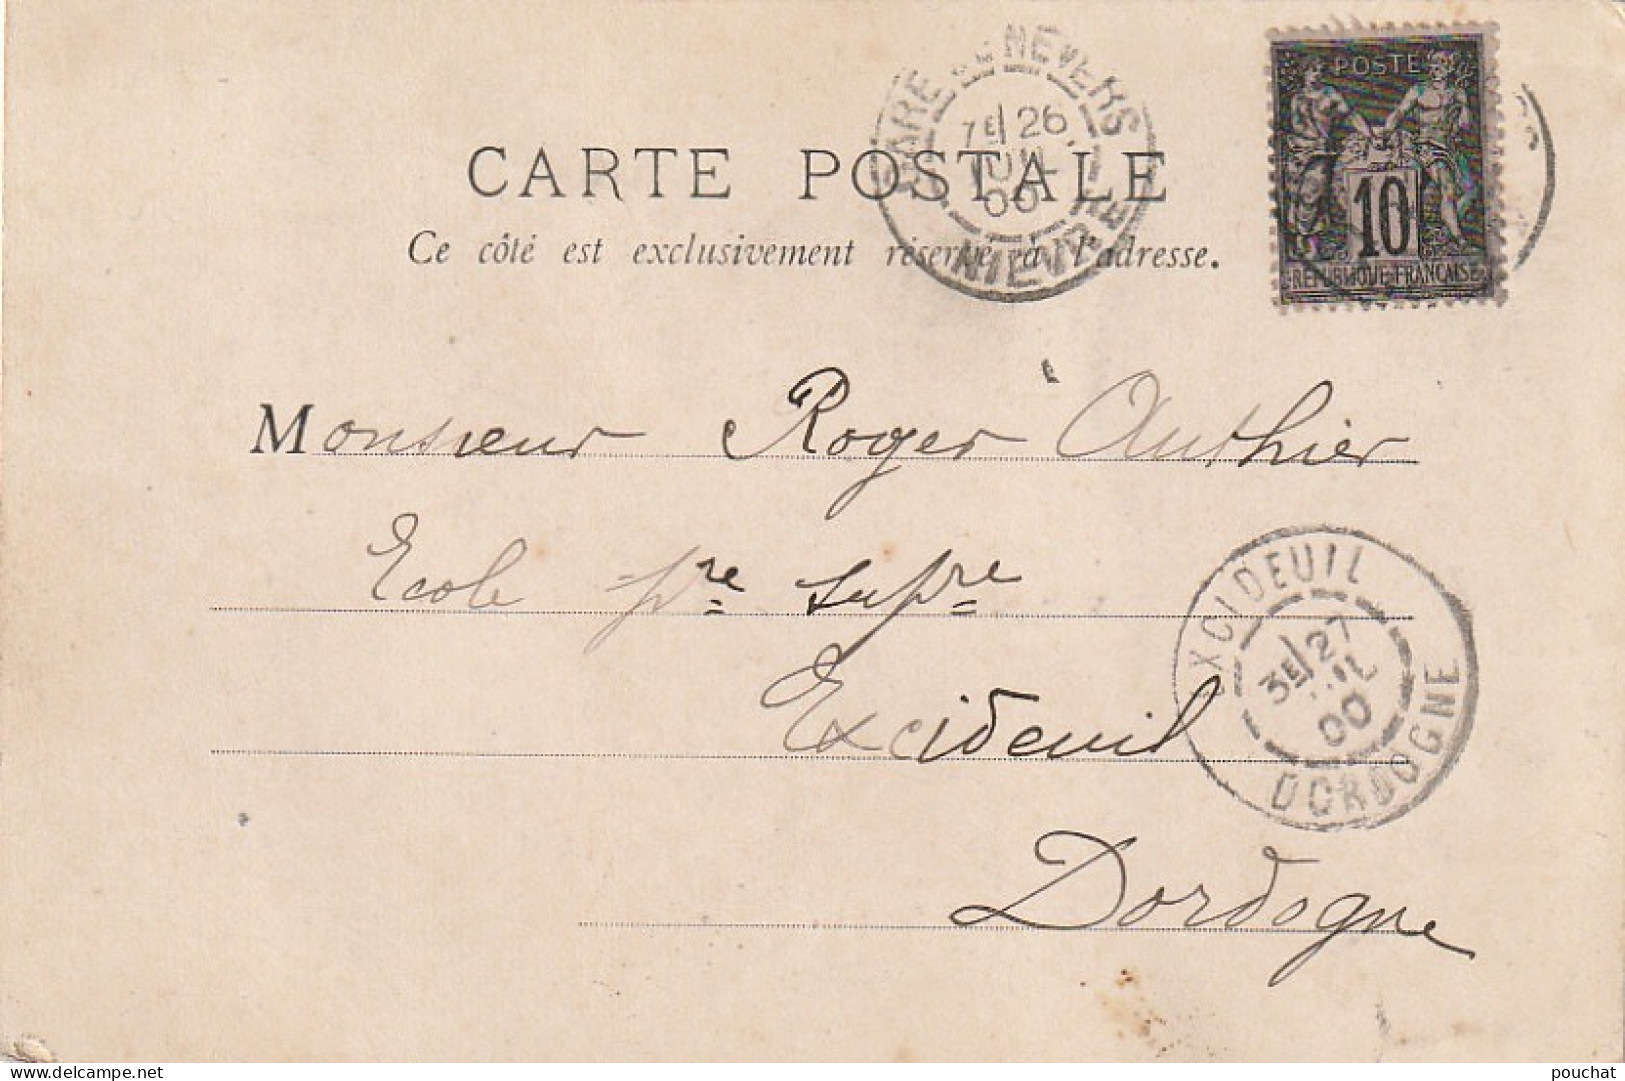 POSTE
10
REPUBLIQUE FRANCAISE
GARE DE NEVERS
7E 26
JUIL
00
NIEVRE
CARTE POSTALE
Ce côté est exclusivement réservé à l'adresse.
Monsieur Roger Authier
Ecole pre supre
Excideuil
Dordogne
EXCIDEUIL
3E 27
JUIL
00
DORDOGNE
www.delcampe.net
pouchat